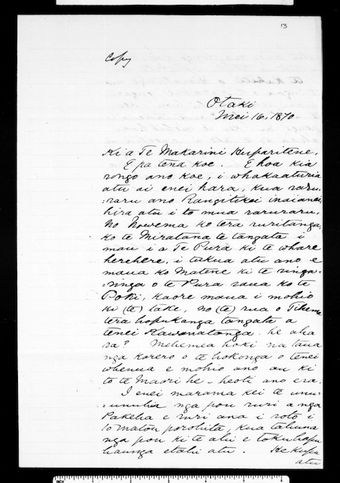 13
Copy
Otaki
Mei 16, 1870
Ki a Te Makarini Huparitene,
E pa tena koe. E hoa kia
rongo ano koe, i whakaaturia
atu ai enei hara, kua raru
raru ano Rangitikei inaianei
hira atu i to mua raruraru,
No Nowema ko tera ruritanga
ko te Miratana te tangata i
mau i a Te Pura ki te whare
herehere, i tukua atu ano e
maua ko Matene ki te ringa
ringa o te Pura raua ko te
Poki, kaore maua i mohio
ki (te) take, No (te) rua o
tera hopukanga tangata a
tenei Kawanatanga, he aha
ra? Mehemea hoki na taua
nga korero o te hokonga o tenei
whenua e mohio ano au ki
to te Maori he, heoti ano era.
I enei marama kei te unu
unuhia nga pou ruri a nga
Pakeha e ruri ana i roto i
o matou porotiti, kua tahuna
nga pou ki te ahi e
haunga etahi atu. He kupu
atu